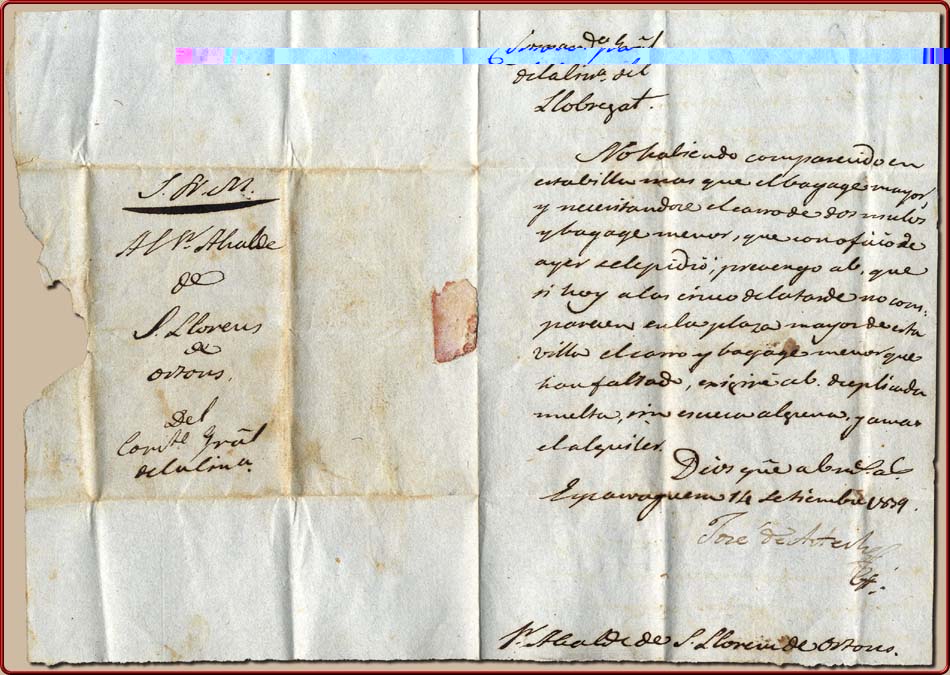 S. N. M.
Al Sr. Alcalde
de
S. Llorens
de
Ortons.
Del
Comte. Gral
de la lina.
de la lina. del
Llobregat.
No habiendo comparecido en
esta billa mas que el bagage mayor,
y necesitandose el carro de dos mulos
y bagage menor, que con oficio de
ayer se le pidió; prevengo a b. que
si hoy a las cinco de la tarde no com-
parecen en la plaza mayor de esta
villa el carro y bagage menor que
han faltado, exigiré a b. duplicada
multa, sin escusa alguna, y amas
el alquiler.
Dios gue. a b. ms. as.
Esparraguera 14 Setiembre 1839.
José de
Sr. Alcalde de S. Llorens de Ortons.